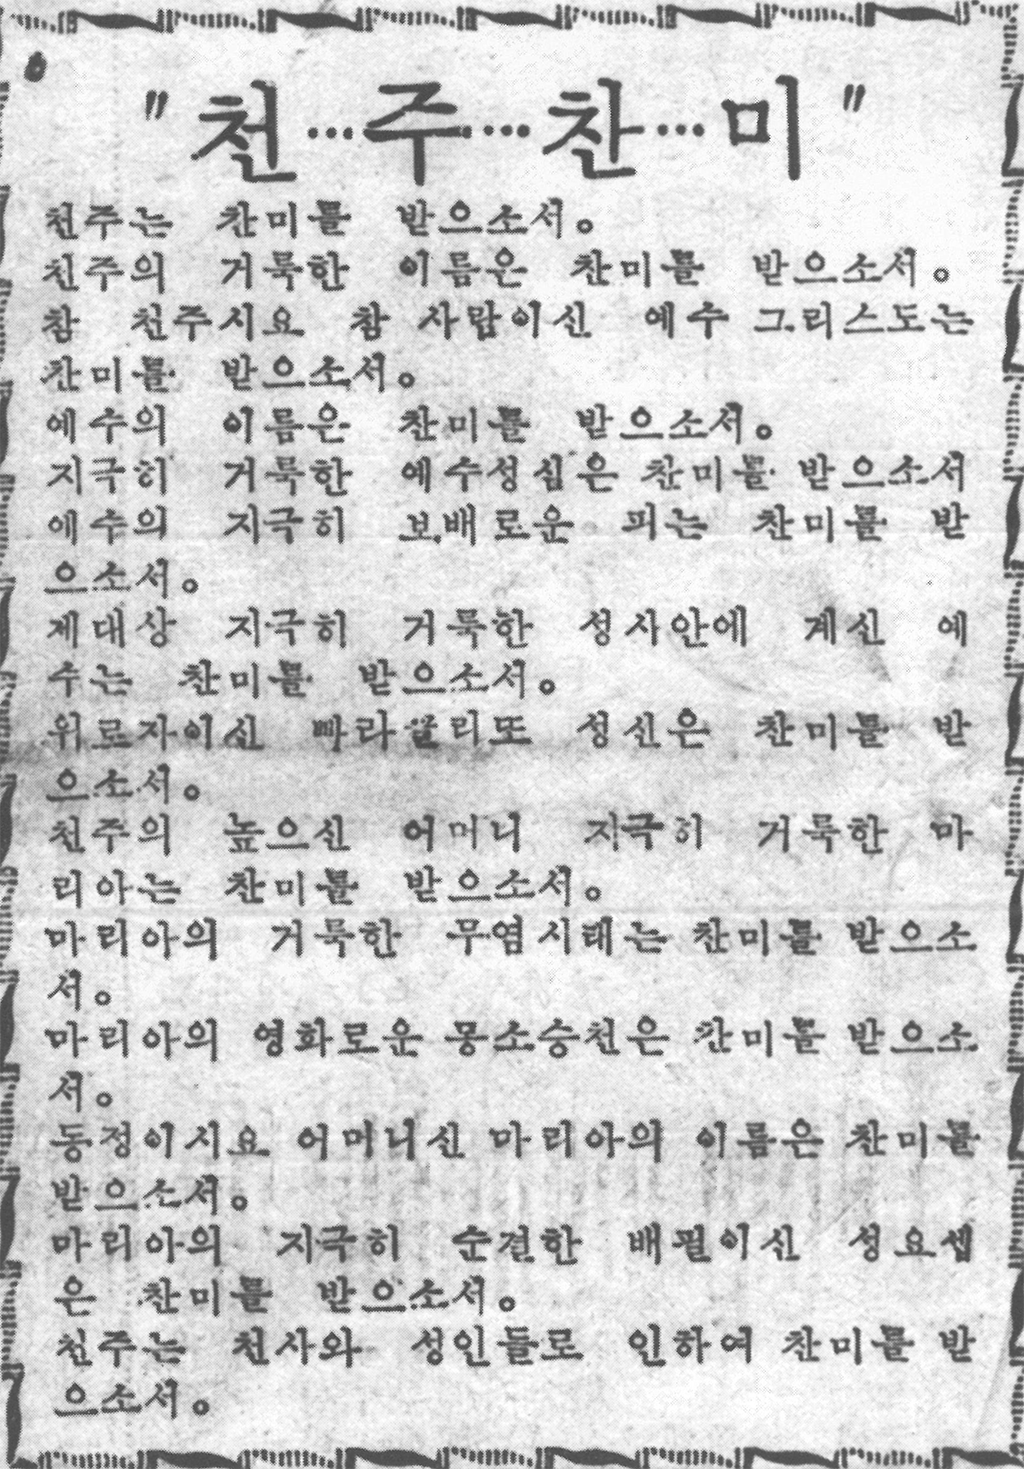 "천…주…찬…미"
천주는 찬미를 받으소서。
천주의 거룩한 이름은 찬미를 받으소서。
참 천주시요 참 사람이신 예수 그리스도는
찬미를 받으소서。
예수의 이름은 찬미를 받으소서。
지극히 거룩한 예수성심은 찬미를 받으소서
예수의 지극히 보배로운 피는 찬미를 받
으소서。
제대상 지극히 거룩한 성사안에 계신 예
수는 찬미를 받으소서。
위로자이신 빠라글리또 성신은 찬미를 받
으소서。
천주의 높으신 어머니 지극히 거룩한 마
리아는 찬미를 받으소서。
마리아의 거룩한 무염시래는 찬미를 받으소
서。
마리아의 영화로운 몽소승천은 찬미를 받으소
서。
동정이시요 어머니신 마리아의 이름은 찬미를
받으소서。
마리아의 지극히 순결한 배필이신 성요셉
은 찬미를 받으소서。
천주는 천사와 성인들로 인하여 찬미를 받
으소서。